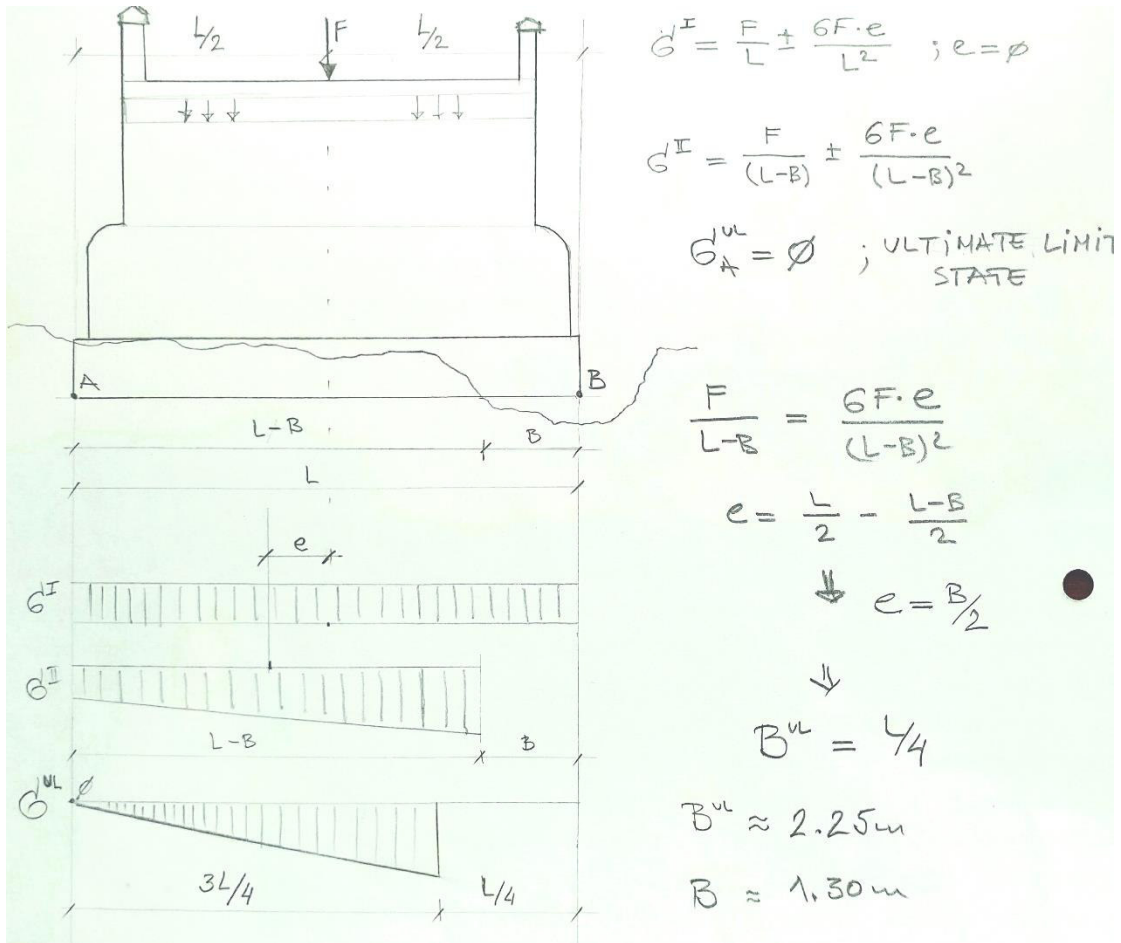 L/2 F L/2
A B
L-B B
L
e
σ^I
σ^II
L-B B
σ^UL ∅
3L/4 L/4
σ^I = F/L ± 6F·e/L² ; e=∅
σ^II = F/(L-B) ± 6F·e/(L-B)²
σ_A^UL = ∅ ; ULTIMATE LIMIT
STATE
F/(L-B) = 6F·e/(L-B)²
e = L/2 - (L-B)/2
⇓ e = B/2
⇓
B^UL = L/4
B^UL ≈ 2.25m
B ≈ 1.30m